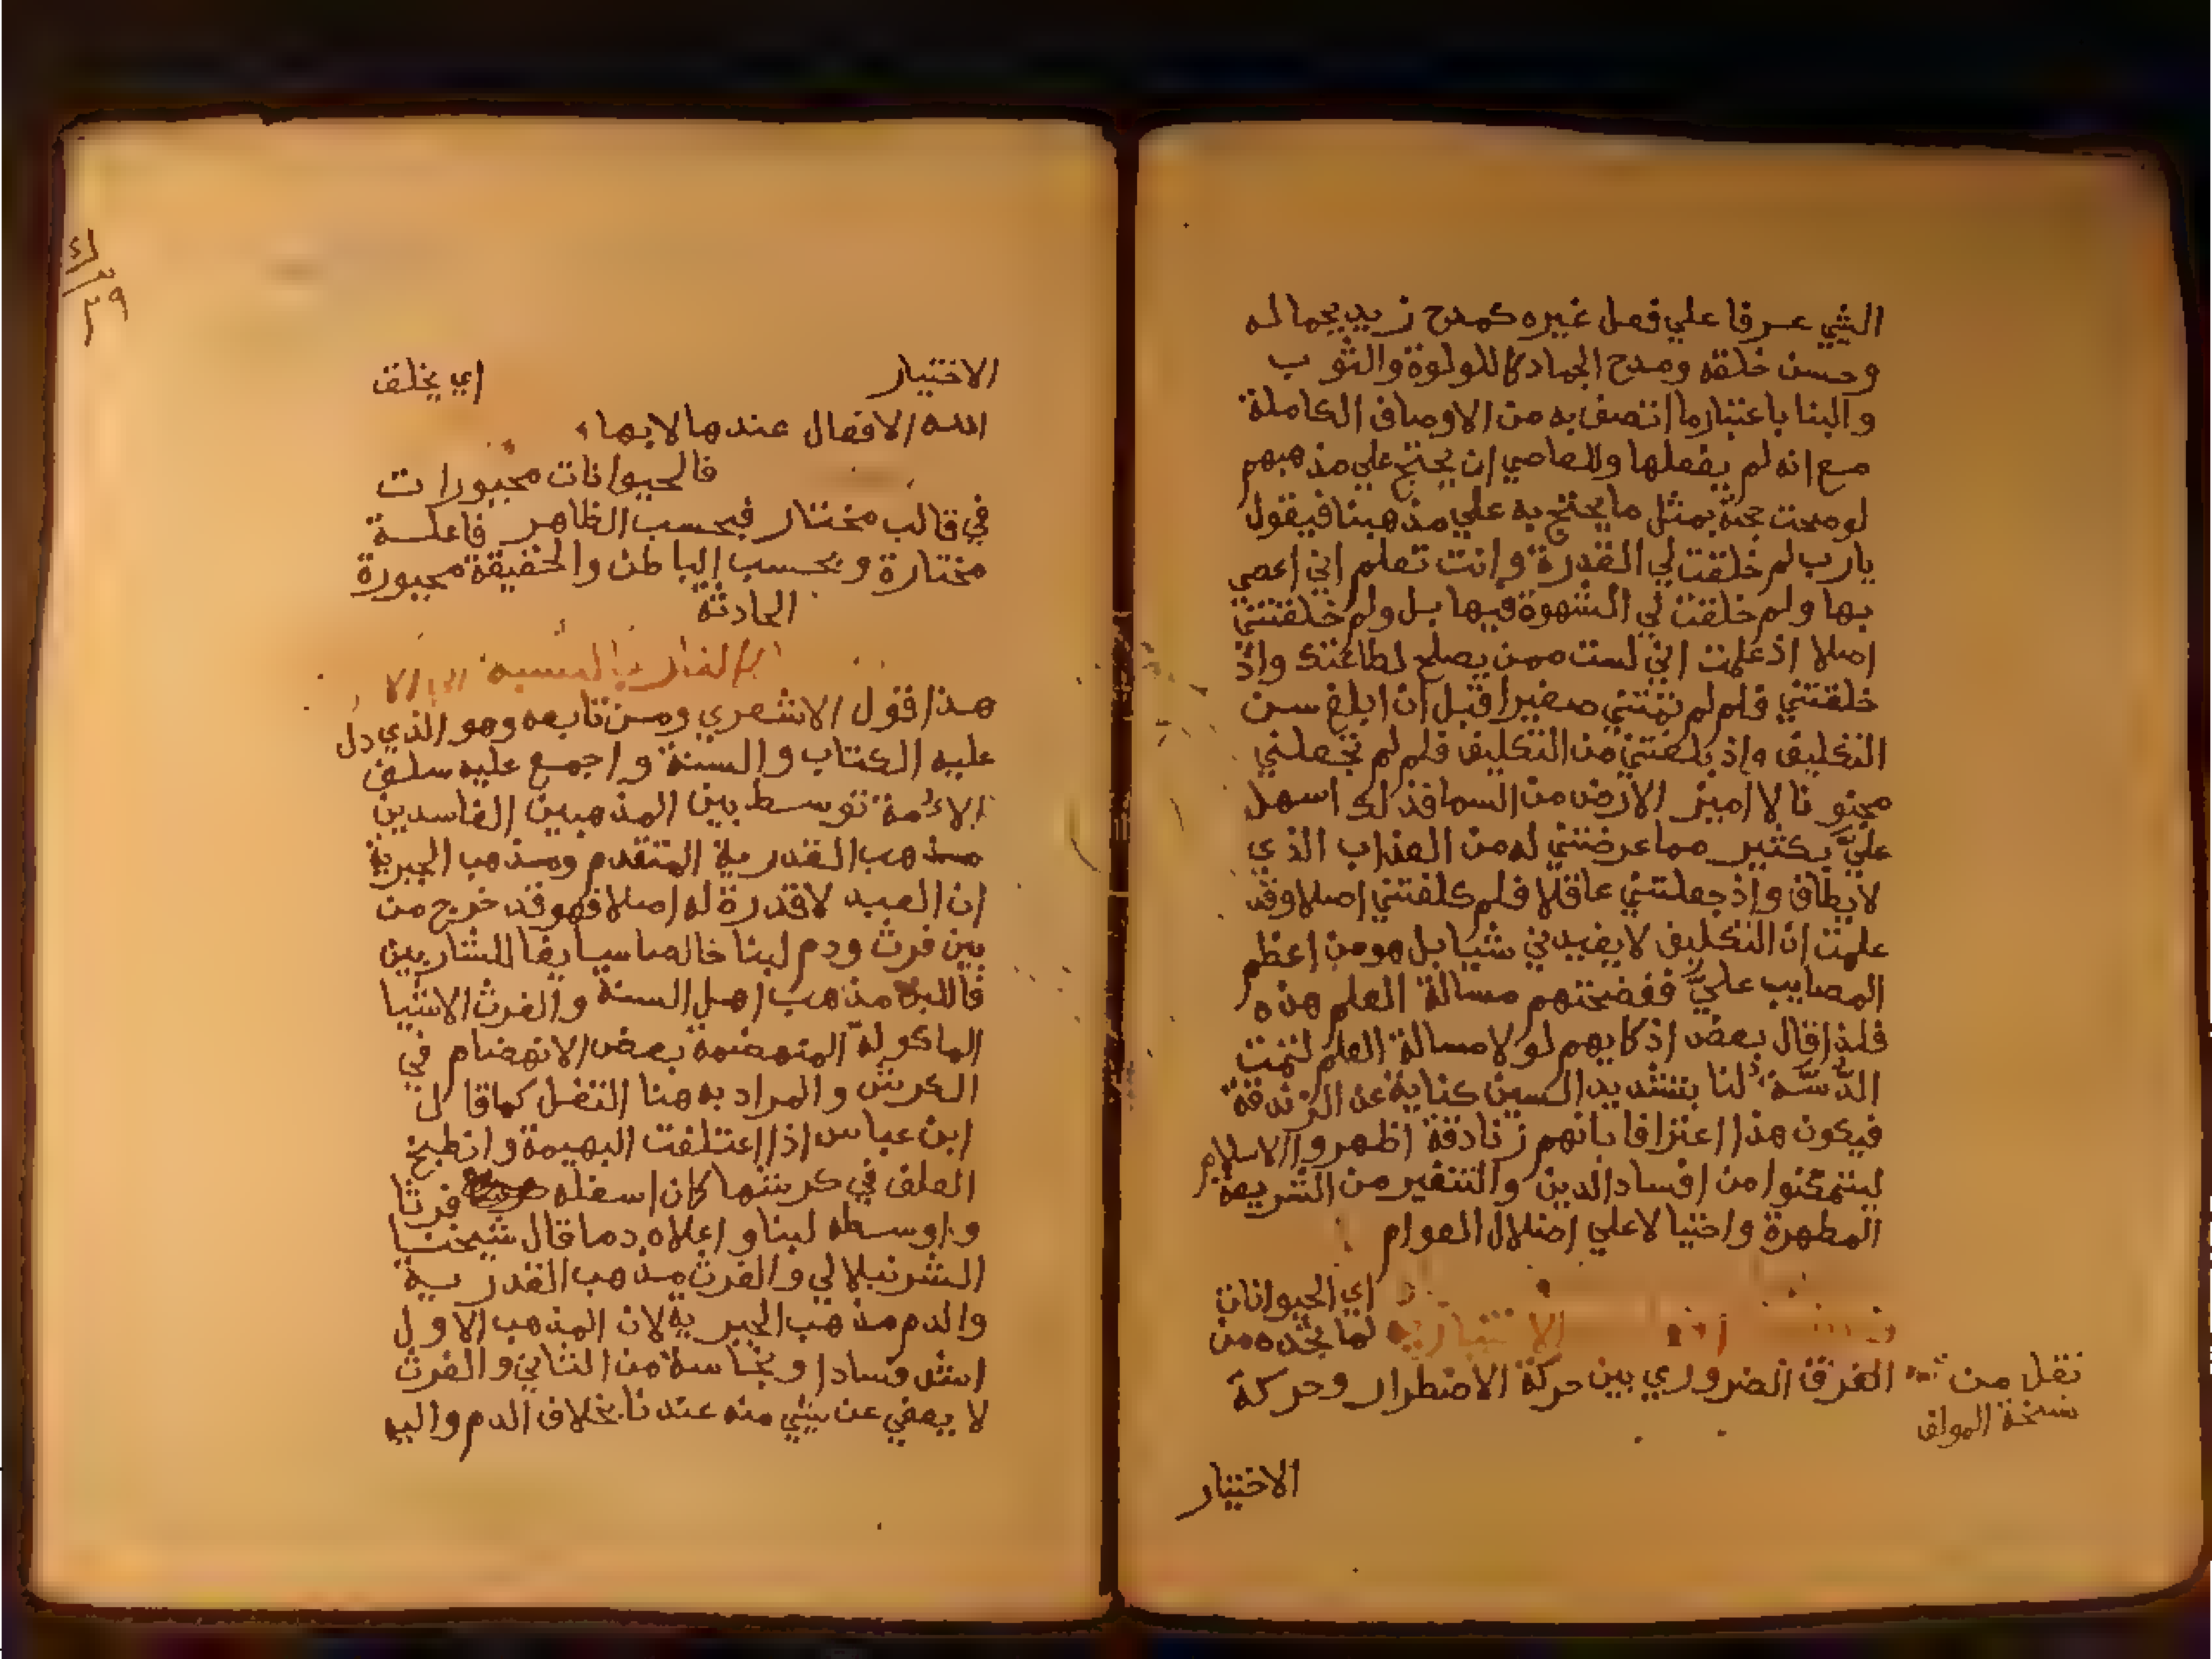 الشي عرفا علي فعل غيره كمدح زيد بجماله
وحسن خلقه ومدح الجماد كاللولوة والثوب
والبنا باعتبار ما اتصف به من الاوصاف الكاملة
مع انه لم يفعلها وللعاصي ان يحتج علي مذهبهم
لو صحت حجة بمثل ما يحتج به علي مذهبنا فيقول
يارب لم خلقت لي القدرة وانت تعلم اني اعصي
بها ولم خلقت لي الشهوة فيها بل ولم خلقتني
اصلا اذ علمت اني لست ممن يصلح لطاعتك واذ
خلقتني فلم لم تمتني صغيرا قبل ان ابلغ سن
التكليف واذ بلغتني من التكليف فلم لم تجعلني
مجنونا لا اميز الارض من السما فذلك اسهل
عليّ بكثير مما عرضتني له من العذاب الذي
لا يطاق واذ جعلتني عاقلا فلم كلفتني اصلا وقد
علمت ان التكليف لا يفيدني شيا بل هو من اعظم
المصايب عليّ ففضحتهم مسالة العلم هذه
فلذا قال بعض اذكايهم لولا مسالة العلم لتمت
الدّسّة لنا بتشديد السين كناية عن الزندقة
فيكون هذا اعترافا بانهم زنادقة اظهروا الاسلام
ليتمكنوا من افساد الدين والتنفير من الشريعة
المطهرة واحتيالا علي اضلال العوام
اي الحيوانات
الاختيارية لما نجده من
الفرق الضروري بين حركة الاضطرار وحركة
نقل من
نسخة المولف
الاختيار
الاختيار اي يخلق
الله الافعال عندها لا بها
فالحيوانات مجبورات
في قالب مختار فبحسب الظاهر
مختارة وبحسب الباطن والحقيقة مجبورة
الحادثة
بالنسبة
هذا قول الاشعري ومن تابعه وهو الذي دل
عليه الكتاب والسنة واجمع عليه سلف
الائمة توسط بين المذهبين الفاسدين
مذهب القدرية المتقدم ومذهب الجبرية
ان العبد لا قدرة له اصلا فهو قد خرج من
بين فرث ودم لبنا خالصا سايغا للشاربين
فاللبن مذهب اهل السنة والفرث الاشيا
الماكولة المنهضمة بعض الانهضام في
الكرش والمراد به هنا الثفل كما قال
ابن عباس اذا اعتلفت البهيمة وانطبخ
العلف في كرشها كان اسفله فرثا
واوسطه لبنا واعلاه دما قال شيخنا
الشرنبلالي والفرث مذهب القدرية
والدم مذهب الجبرية لان المذهب الاول
اشد فسادا ونجاسة من الثاني والفرث
لا يعفي عن شي منه عندنا بخلاف الدم واليه